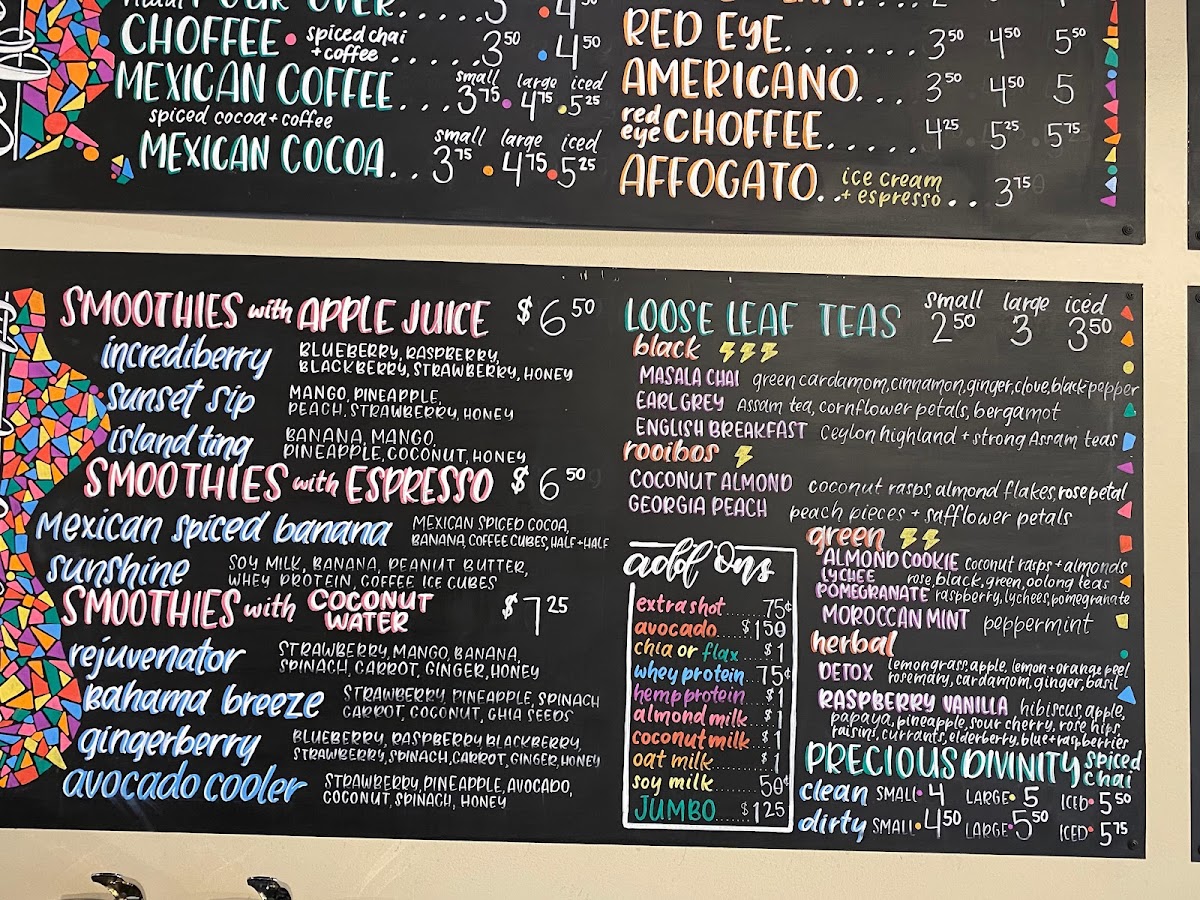 POUR OVER.....3 • 4⁵⁰
CHOFFEE • spiced chai
+ coffee.....3⁵⁰ • 4⁵⁰
MEXICAN COFFEE...small 3⁷⁵ • large 4⁷⁵ • iced 5²⁵
spiced cocoa + coffee
MEXICAN COCOA..small 3⁷⁵ • large 4⁷⁵ • iced 5²⁵
RED EYE.......3⁵⁰ 4⁵⁰ 5⁵⁰
AMERICANO....3⁵⁰ 4⁵⁰ 5
red eye CHOFFEE.....4²⁵ 5²⁵ 5⁷⁵
AFFOGATO..ice cream
+ espresso..3⁷⁵
SMOOTHIES with APPLE JUICE $6⁵⁰
incrediberry BLUEBERRY, RASPBERRY,
BLACKBERRY, STRAWBERRY, HONEY
sunset sip MANGO, PINEAPPLE,
PEACH, STRAWBERRY, HONEY
island ting BANANA, MANGO,
PINEAPPLE, COCONUT, HONEY
SMOOTHIES with ESPRESSO $6⁵⁰
Mexican spiced banana MEXICAN SPICED COCOA,
BANANA, COFFEE CUBES, HALF+HALF
sunshine SOY MILK, BANANA, PEANUT BUTTER,
WHEY PROTEIN, COFFEE ICE CUBES
SMOOTHIES with COCONUT WATER $7²⁵
rejuvenator STRAWBERRY, MANGO, BANANA,
SPINACH, CARROT, GINGER, HONEY
Bahama breeze STRAWBERRY, PINEAPPLE, SPINACH
CARROT, COCONUT, CHIA SEEDS
gingerberry BLUEBERRY, RASPBERRY, BLACKBERRY,
STRAWBERRY, SPINACH, CARROT, GINGER, HONEY
avocado cooler STRAWBERRY, PINEAPPLE, AVOCADO,
COCONUT, SPINACH, HONEY
LOOSE LEAF TEAS small 2⁵⁰ large 3 iced 3⁵⁰
black
MASALA CHAI green cardamom, cinnamon, ginger, clove, black pepper
EARL GREY Assam tea, cornflower petals, bergamot
ENGLISH BREAKFAST Ceylon highland + strong Assam teas
rooibos
COCONUT ALMOND coconut rasps, almond flakes, rose petal
GEORGIA PEACH peach pieces + safflower petals
green
ALMOND COOKIE coconut rasps + almonds
LYCHEE POMEGRANATE rose, black, green, oolong teas
raspberry, lychees, pomegranate
MOROCCAN MINT peppermint
herbal
DETOX lemongrass, apple, lemon + orange peel
rosemary, cardamom, ginger, basil
RASPBERRY VANILLA hibiscus, apple,
papaya, pineapple, sour cherry, rose hips,
raisins, currants, elderberry, blue + raspberries
PRECIOUS DIVINITY spiced chai
clean SMALL • 4 LARGE • 5 ICED • 5⁵⁰
dirty SMALL • 4⁵⁰ LARGE • 5⁵⁰ ICED • 5⁷⁵
add ons
extra shot.....75¢
avocado...$1⁵⁰
chia or flax..$1
whey protein..75¢
hemp protein..$1
almond milk..$1
coconut milk..$1
oat milk.......$1
soy milk......50¢
JUMBO......$1²⁵